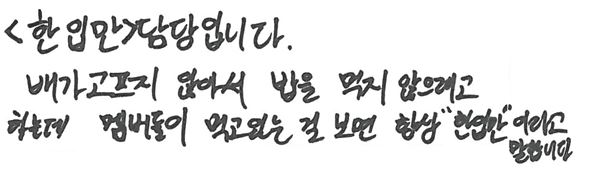 <한입만>담당입니다.
배가고프지 않아서 밥을 먹지 않으려고
하는데 멤버들이 먹고있는 걸 보면 항상 "한입만"이라고
말합니다